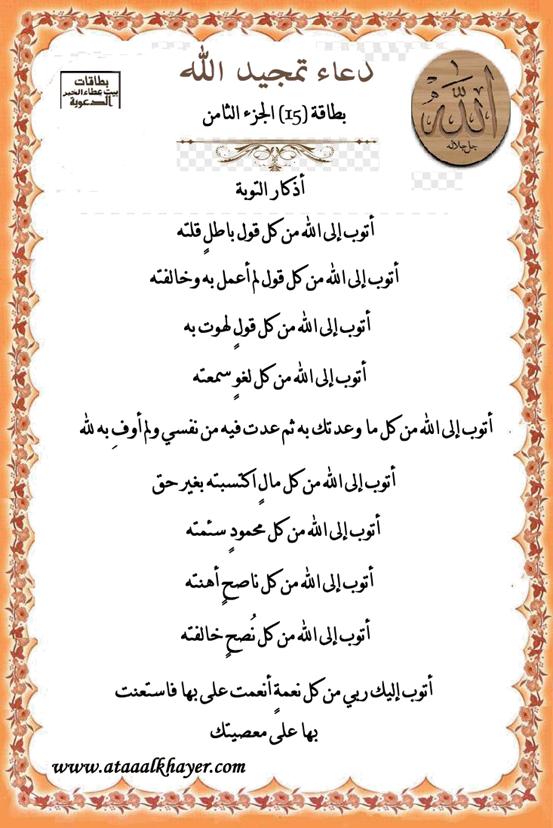 دعاء تمجيد الله
بطاقة (15) الجزء الثامن
بطاقات
بيت عطاء الخير
الدعوية
الله
جل جلاله
أذكار التوبة
أتوب إلى الله من كل قول باطلٍ قلته
أتوب إلى الله من كل قول لم أعمل به وخالفته
أتوب إلى الله من كل قولٍ لهوت به
أتوب إلى الله من كل لغوٍ سمعته
أتوب إلى الله من كل ما وعدتك به ثم عدت فيه من نفسي ولم أوفِ به لله
أتوب إلى الله من كل مالٍ اكتسبته بغير حق
أتوب إلى الله من كل محمودٍ سئمته
أتوب إلى الله من كل ناصحٍ أهنته
أتوب إلى الله من كل نُصحٍ خالفته
أتوب إليك ربي من كل نعمةٍ أنعمت على بها فاستعنت
بها على معصيتك
www.ataaalkhayer.com